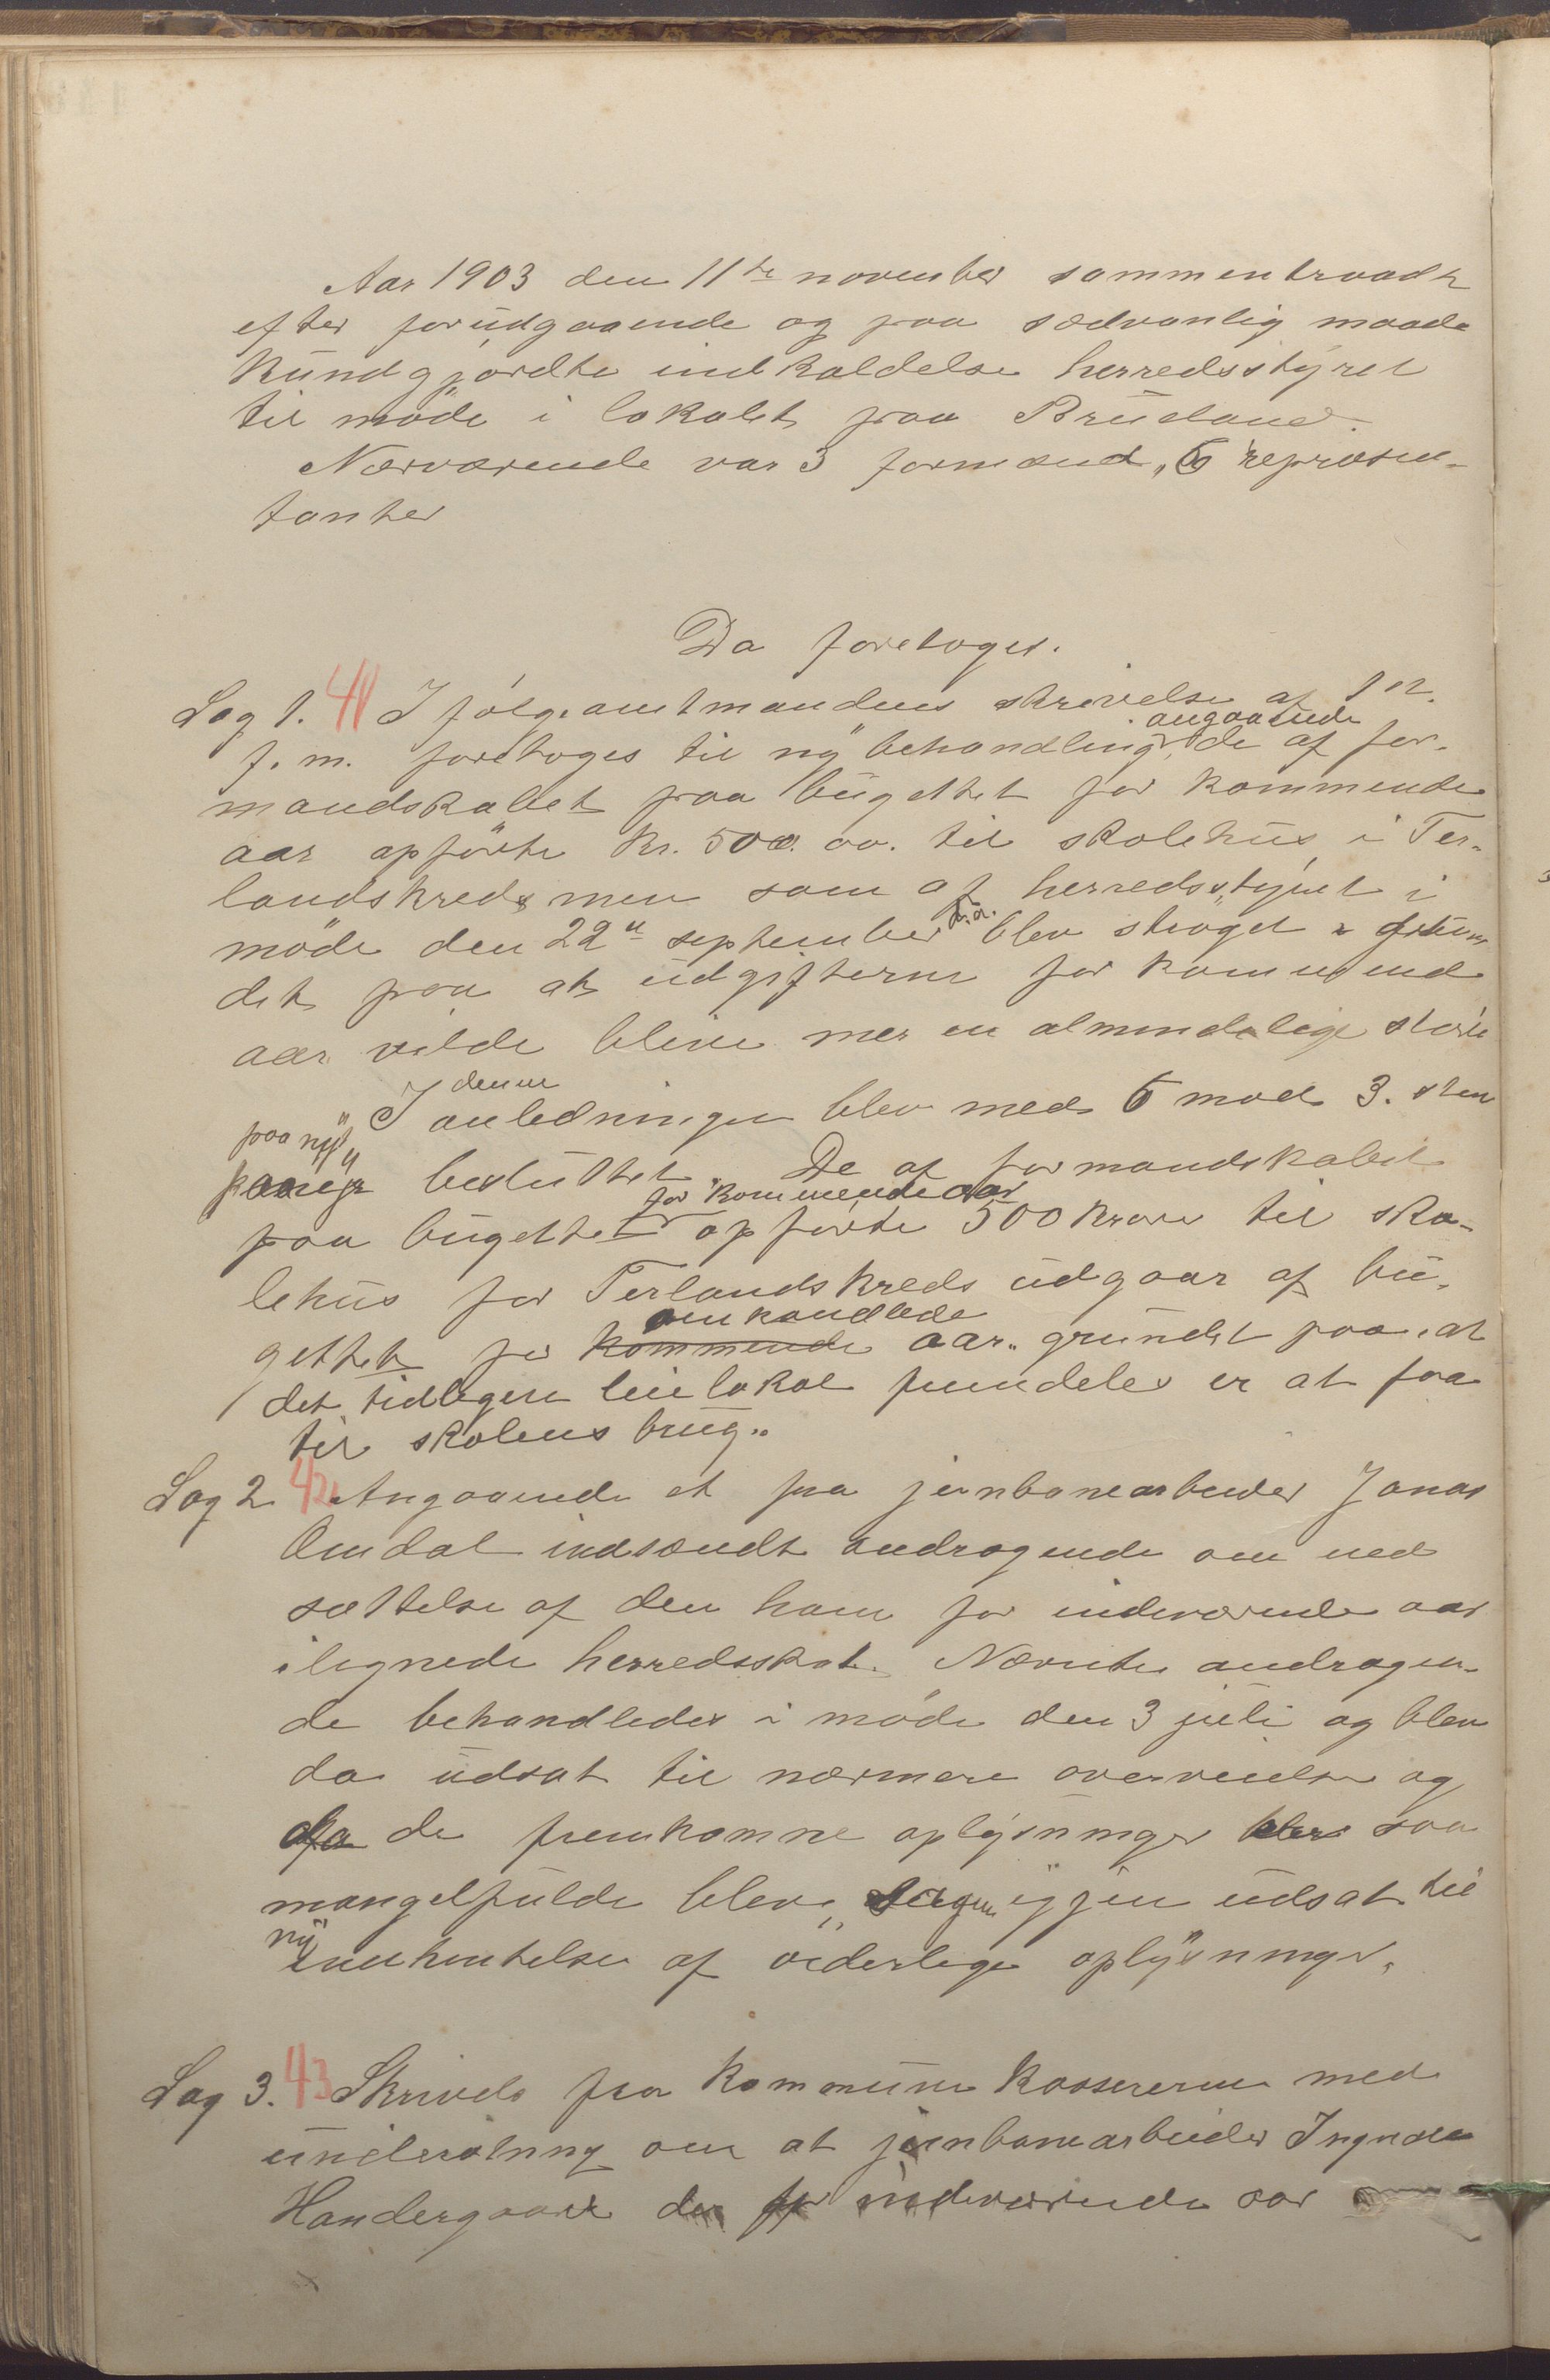 Aar 1903 den 11te november sammentraadte
efter forudgaaende og paa sædvanlig maade
kundgjordte indkaldelse herredsstyret
til møde i lokalet paa Brueland.
Nærværende var 3 formænd, 6 repræsen-
tanter
Da foretoges.
Sag 1. 41 I følge amtmandens skrivelse af 1ste
angaaende
f. m. foretoges til ny behandling de af for-
mandskabet paa bugettet for kommende
aar opførte kr. 500.00. til skolehus i Ter-
landskreds men som af herredsstyret i
møde den 22de september d.a. blev strøget grun
det paa at udgifterne for kommende
aar vilde blive mer en almindelige store
denne
I anledningen blev med 6 mod 3. stem
paa nyt
besluttet. De af formandskabet
for kommende aar
paa bugettet opførte 500 kroner til sko-
lehus for Terlandskreds udgaar af bu-
omhandlede
gettet for kommende aar. grundet paa, at
det tidligere leielokal fremdeles er at faa
til skolens brug.
Sag 2 42 Angaaende et fra jernbanearbeider Jonas
Omdal indsendt andragende om ned
sættelse af den ham for indeværende aar
ilignede herredsskat. Nævnte andragen-
de behandledes i møde den 3 juli og blev
da udsat til nærmere overveielse og
da de fremkomne oplysninger var saa
mangelfulde blev sagen igjen udsat til
ny
indhentelse af viderlige oplysninger.
Sag 3. 43 Skrivels fra kommunekassereren med
underretning om at jernbanearbeider Ingvald
Handergaard der for indeværende aar